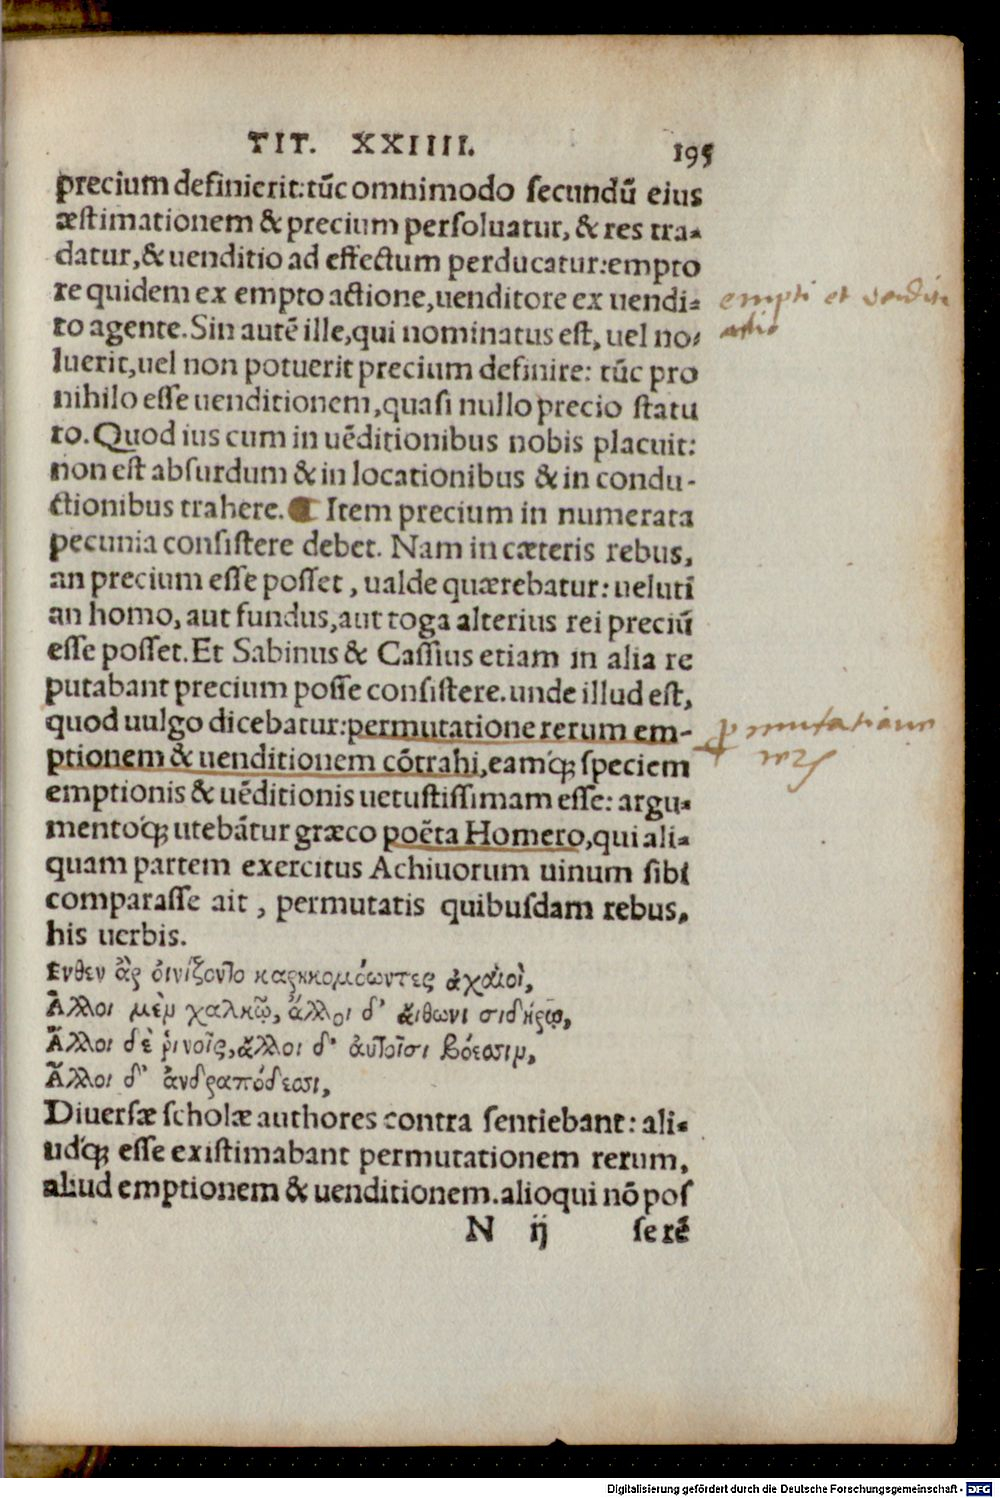 TIT. XXIIII. 195
precium definierit: tũc omnimodo secundũ eius
æstimationem & precium persoluatur, & res tra-
datur, & uenditio ad effectum perducatur: empto
re quidem ex empto actione, uenditore ex uendi-
empti et vendit
actio
to agente. Sin autẽ ille, qui nominatus est, uel no-
luerit, uel non potuerit precium definire: tũc pro
nihilo esse uenditionem, quasi nullo precio statu
to. Quod ius cum in uẽditionibus nobis placuit:
non est absurdum & in locationibus & in condu-
ctionibus trahere. ¶ Item precium in numerata
pecunia consistere debet. Nam in cæteris rebus,
an precium esse posset, ualde quærebatur: ueluti
an homo, aut fundus, aut toga alterius rei preciũ
esse posset. Et Sabinus & Cassius etiam in alia re
putabant precium posse consistere. unde illud est,
quod uulgo dicebatur: permutatione rerum em-
ꝑmutatione
reꝝ
ptionem & uenditionem cõtrahi, eamq́ꝫ speciem
emptionis & uẽditionis uetustissimam esse: argu-
mentoq́ꝫ utebãtur græco poẽta Homero, qui ali-
quam partem exercitus Achiuorum uinum sibi
comparasse ait, permutatis quibusdam rebus,
his uerbis.
Ενθεν ἂρ ὀινίζοντο καρηκομόωντες ἀχαιοὶ,
Ἄλλοι μὲν χαλκῷ, ἄλλοι δ' ἄιθωνι σιδήρῳ,
Ἄλλοι δὲ ῥινοῖς, ἄλλοι δ' ἀυτοῖσι βόεσσιν,
Ἄλλοι δ' ἀνδραπόδεσσι,
Diuersæ scholæ authores contra sentiebant: ali-
udq́ꝫ esse existimabant permutationem rerum,
aliud emptionem & uenditionem. alioqui nõ pos
N ij se rẽ
Digitalisierung gefördert durch die Deutsche Forschungsgemeinschaft - DFG